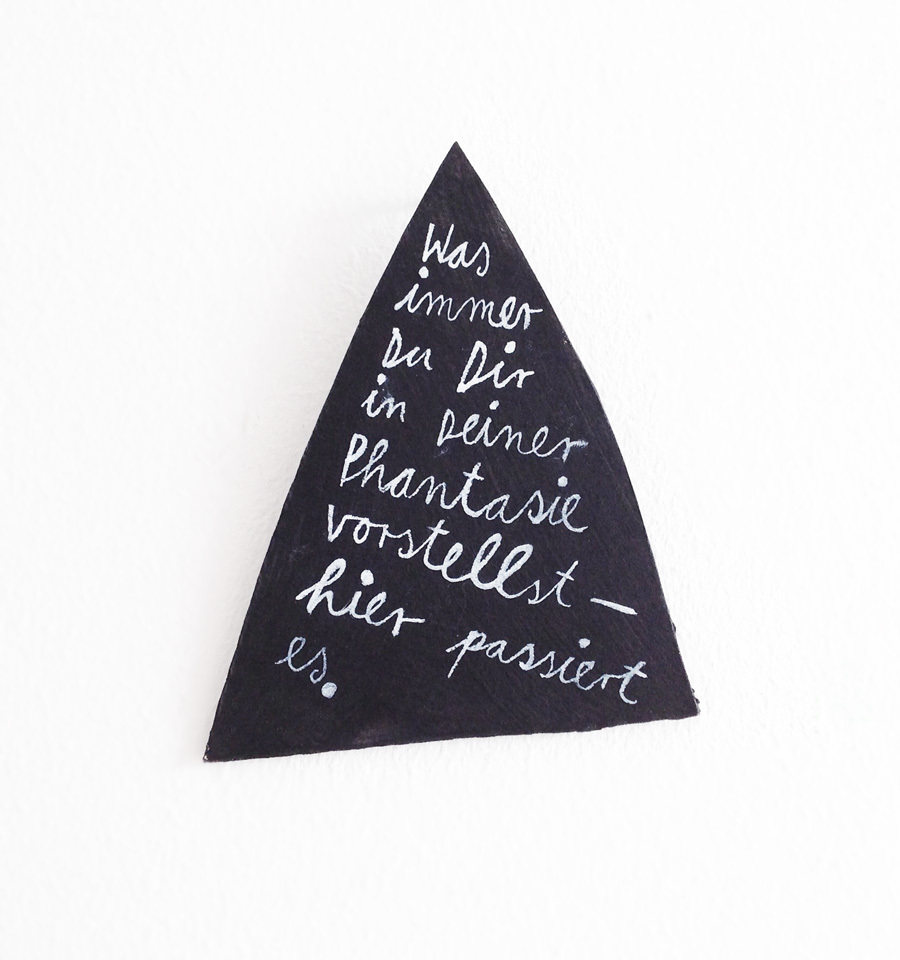 Was
immer
Du Dir
in Deiner
Phantasie
vorstellst –
hier passiert
es.